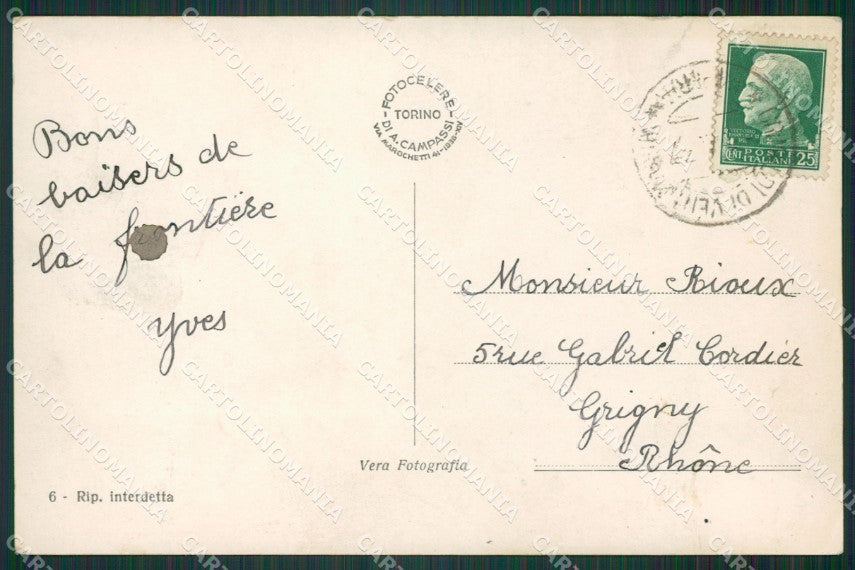 Bons
baisers de
la frontière
yves
FOTOCELERE
TORINO
DI A. CAMPASSI
VIA MAROCHETTI 41 - 1936-XIV
POSTE
ITALIANE
CENT 25
Monsieur Rioux
5 rue Gabriel Cordier
Grigny
Rhône
Vera Fotografia
6 - Rip. interdetta
CARTOLINOMANIA